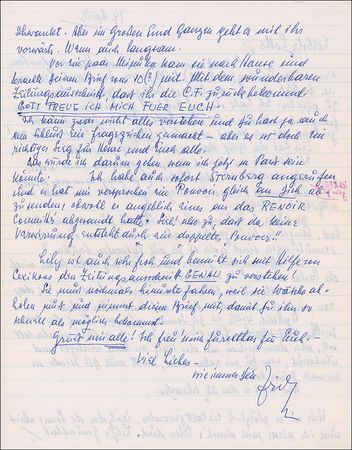 schwankt. Aber im Großen und Ganzen geht es mit ihr
vorwärts. Wenn auch langsam.
Vor ein paar Minuten kam sie nach Hause und
brachte Deinen Brief vom 10(?) mit. Mit dem wunderbaren
Zeitungsausschnitt, dass ihr die C.F. zurückbekommt
GOTT FREUE ICH MICH FUER EUCH.
Ich kann zwar nicht alles verstehen und Du hast ja auch
am Schluss ein Fragezeichen gemacht – aber es ist doch ein
richtiger Sieg für Heine und Euch alle.
Was würde ich darum geben wenn ich jetzt in Paris sein
könnte. Ich habe auch sofort Sternberg angerufen
und er hat mir versprochen die Pouvoir gleich an Dich ab
zusenden obwohl er angeblich eines an das RENOIR
Comité abgesandt hatte. Ach! also zu, dass da keine
Verwirrung entsteht durch ein doppeltes „Pouvoir"!!
Lilly ist auch sehr froh und bemüht sich mit Hilfe von
Lexikons den Zeitungsausschnitt GENAU zu verstehen!
Sie muss nochmals hinunterfahren, weil sie Wäsche ab-
holen muss und nimmt diesen Brief mit, damit Du ihn so
schnell als möglich bekommst.
Grüss mir alle! Ich freu' mich furchtbar für Euch! –
Viel Liebes –
wie immer Dein